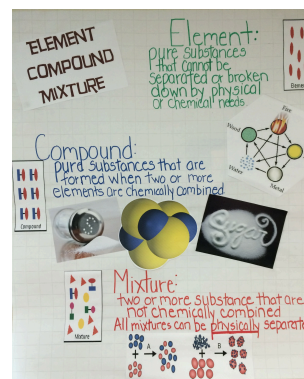 ELEMENT
COMPOUND
MIXTURE
Element:
pure substances
that cannot be
separated or broken
down by physical
or chemical needs.
Fire
Wood
Water
Metal
Compound:
pure substances that are
formed when two or more
elements are chemically combined
Compound
Sugar
Mixture:
two or more substance that are
not chemically combined
All mixtures can be physically separate
Mixture
A
B